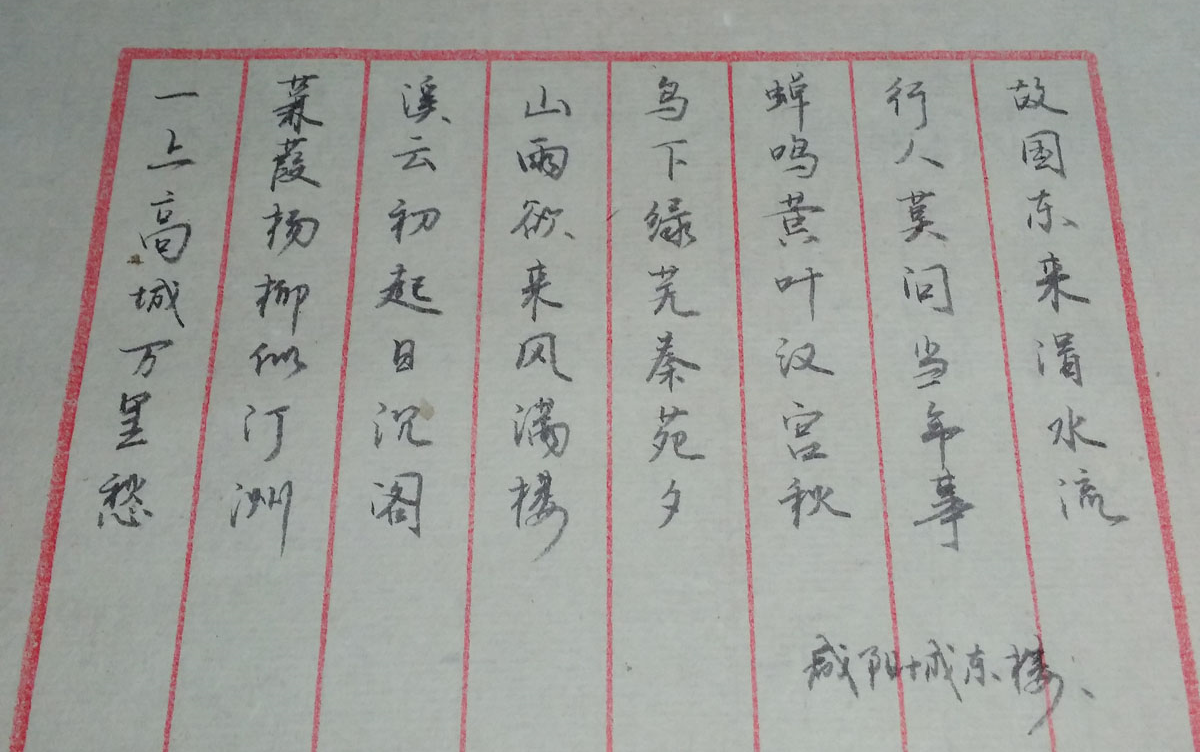 一上高城万里愁
蒹葭杨柳似汀洲
溪云初起日沉阁
山雨欲来风满楼
鸟下绿芜秦苑夕
蝉鸣黄叶汉宫秋
行人莫问当年事
故国东来渭水流
咸阳城东楼、